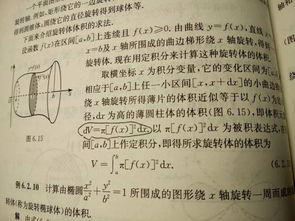 一个平面图
旋转轴. 例如, 矩形绕它的一边旋转
得到圆锥体, 圆绕它的直径旋转得到球体等.
下面来介绍旋转体体积的求法.
设函数 f(x)在区间[a,b]上连续且 f(x)≥0. 由曲线 y=f(x), 直线 x
x=b及 x 轴所围成的曲边梯形绕 x 轴旋转, 得到
旋转体. 现在用定积分来计算这种旋转体的体积.
取横坐标 x 为积分变量, 它的变化区间为[a,b]
相应于[a,b]上任一小区间[x,x+dx]的小曲边
绕 x 轴旋转所得薄片的体积近似等于以 f(x)为
径, dx 为高的薄圆柱体的体积(图 6.15), 即体积元
dV=π[f(x)]²dx. 以 π[f(x)]²dx 为被积表达式, 在
间[a,b]上作定积分, 即得所求旋转体的体积为
V=∫ₐᵇπ[f(x)]²dx. (6.2.
图 6.15
例 6.2.10 计算由椭圆 x²/a²+y²/b²=1 所围成的图形绕 x 轴旋转一周而成
转体(称为旋转椭球体)的体积.